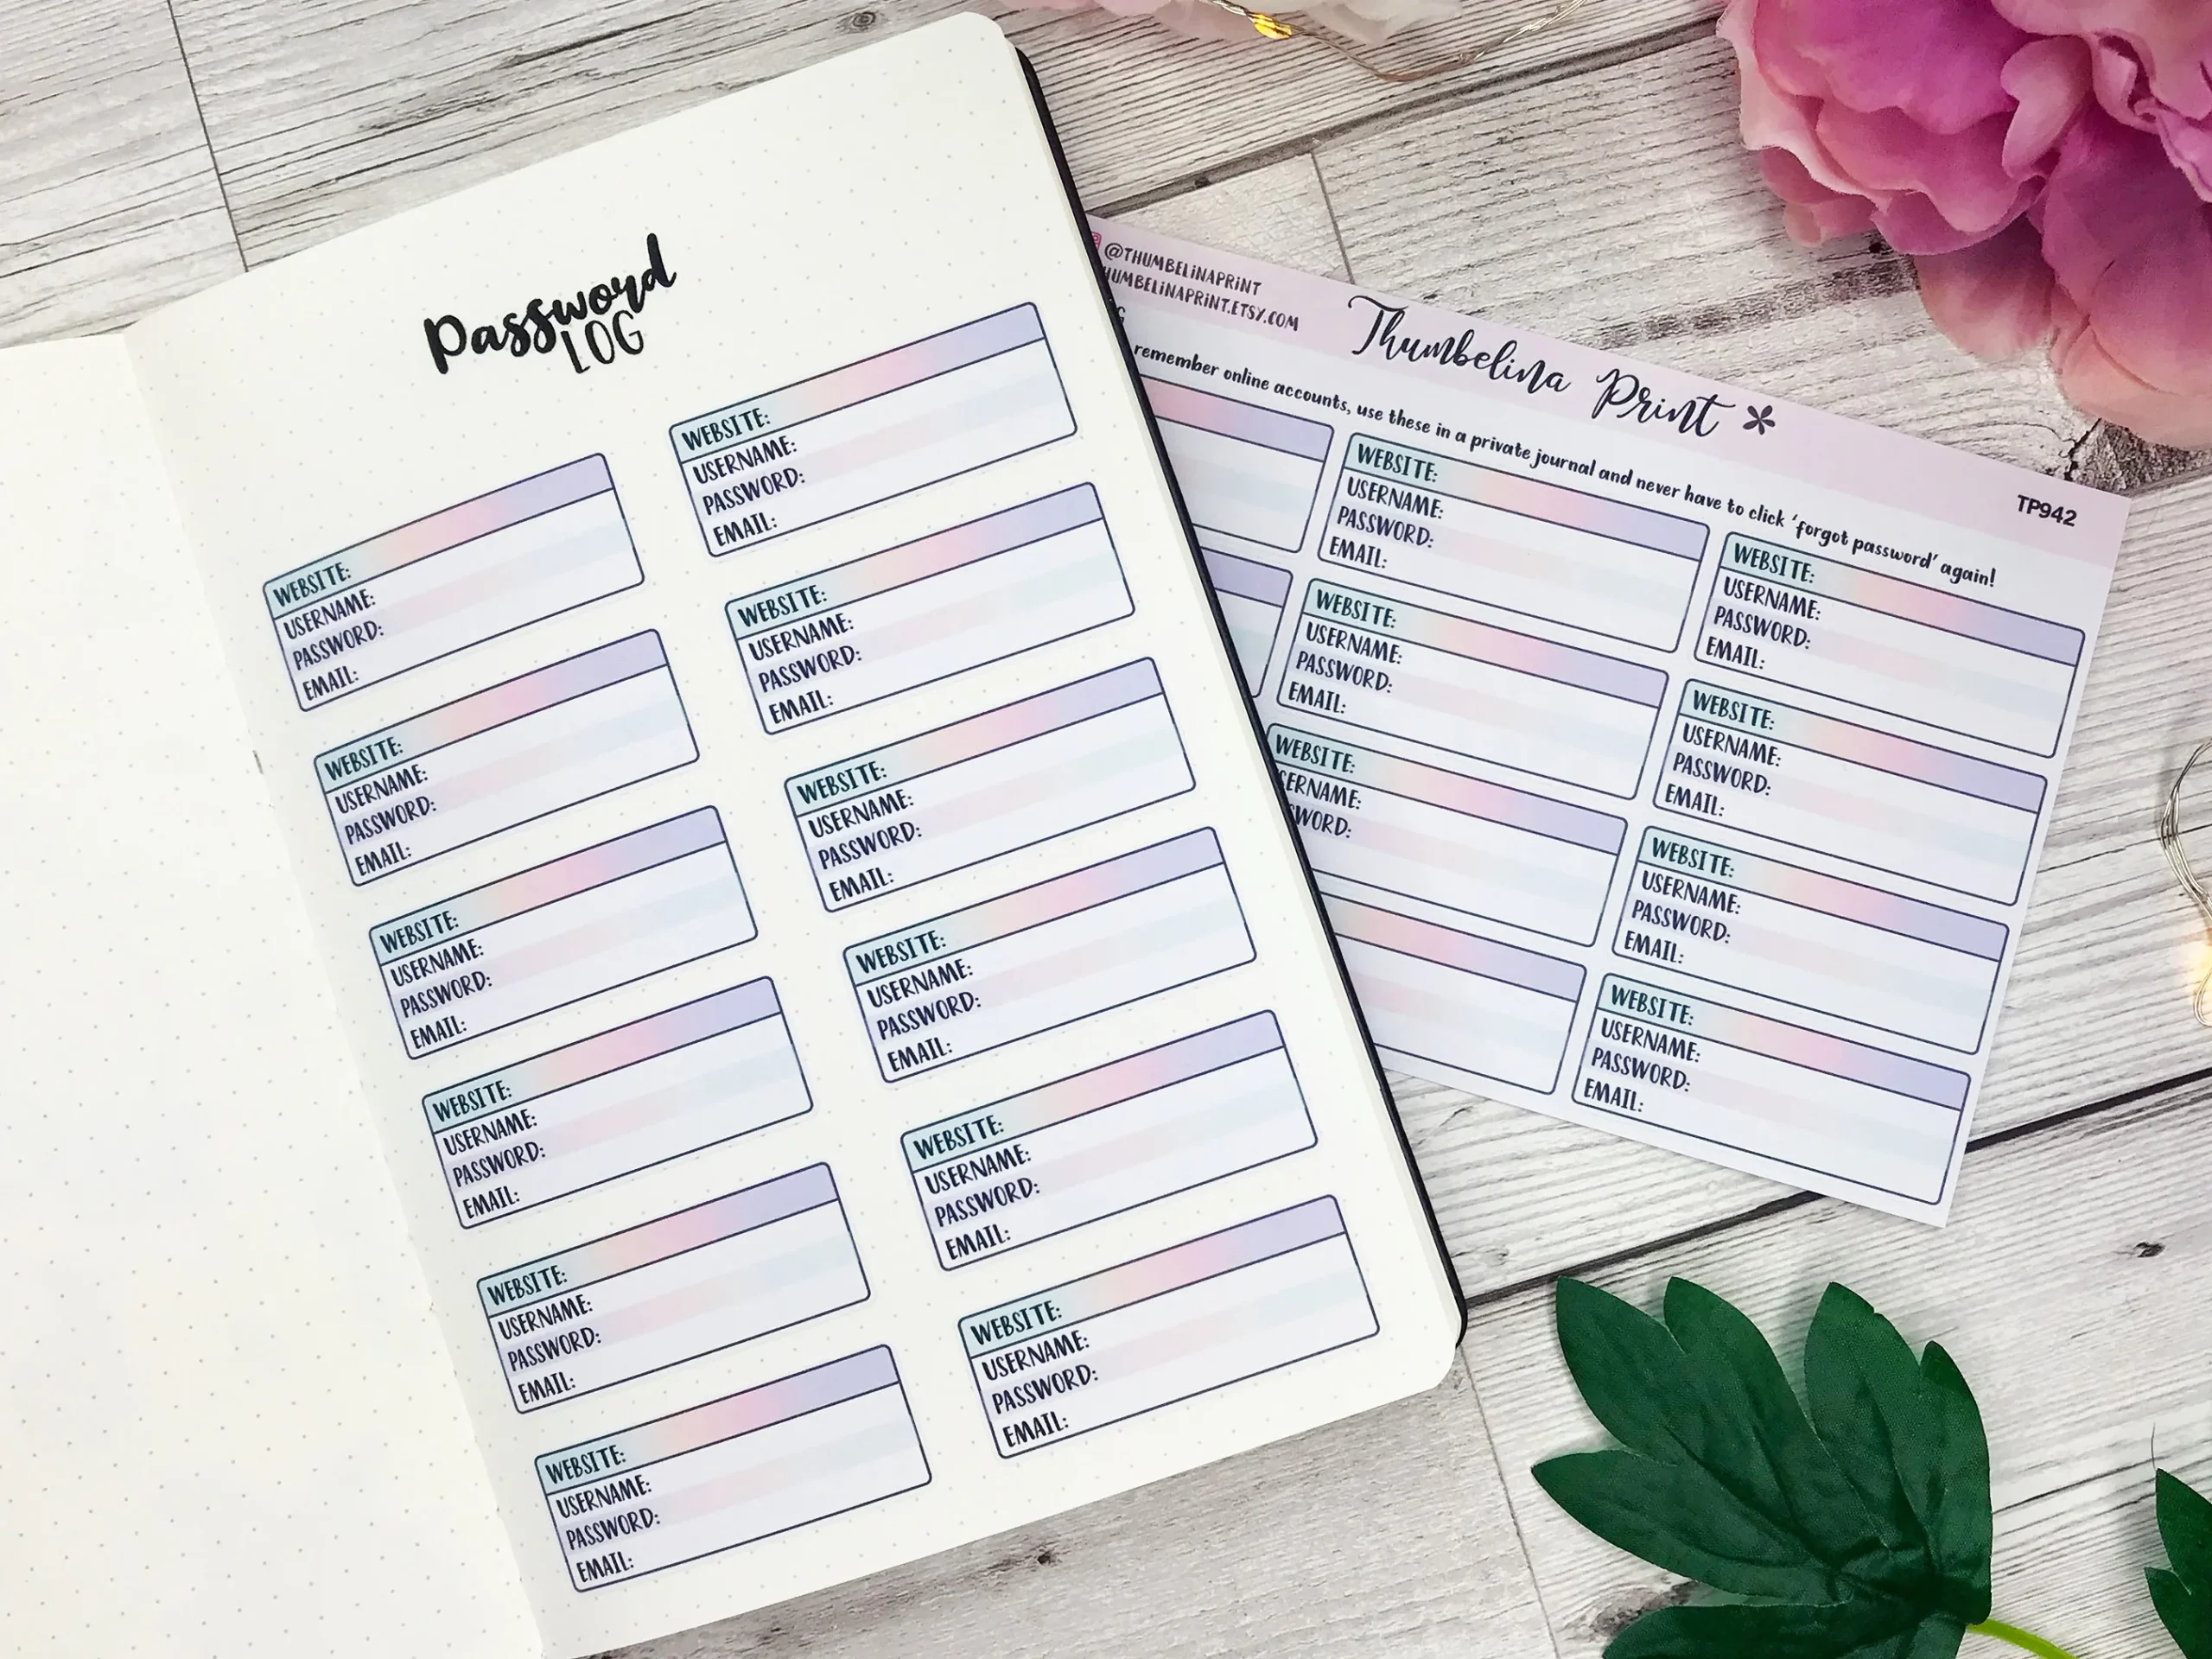 Password
LOG
WEBSITE:
USERNAME:
PASSWORD:
EMAIL:
WEBSITE:
USERNAME:
PASSWORD:
EMAIL:
WEBSITE:
USERNAME:
PASSWORD:
EMAIL:
WEBSITE:
USERNAME:
PASSWORD:
EMAIL:
WEBSITE:
USERNAME:
PASSWORD:
EMAIL:
WEBSITE:
USERNAME:
PASSWORD:
EMAIL:
WEBSITE:
USERNAME:
PASSWORD:
EMAIL:
WEBSITE:
USERNAME:
PASSWORD:
EMAIL:
WEBSITE:
USERNAME:
PASSWORD:
EMAIL:
WEBSITE:
USERNAME:
PASSWORD:
EMAIL:
WEBSITE:
USERNAME:
PASSWORD:
EMAIL:
WEBSITE:
USERNAME:
PASSWORD:
EMAIL:
@THUMBELINAPRINT
HUMBELINAPRINT.ETSY.COM
Thumbelina Print
TP942
remember online accounts, use these in a private journal and never have to click 'forgot password' again!
WEBSITE:
USERNAME:
PASSWORD:
EMAIL:
WEBSITE:
USERNAME:
PASSWORD:
EMAIL:
WEBSITE:
ERNAME:
WORD:
WEBSITE:
USERNAME:
PASSWORD:
EMAIL:
WEBSITE:
USERNAME:
PASSWORD:
EMAIL:
WEBSITE:
USERNAME:
PASSWORD:
EMAIL:
WEBSITE:
USERNAME:
PASSWORD:
EMAIL: